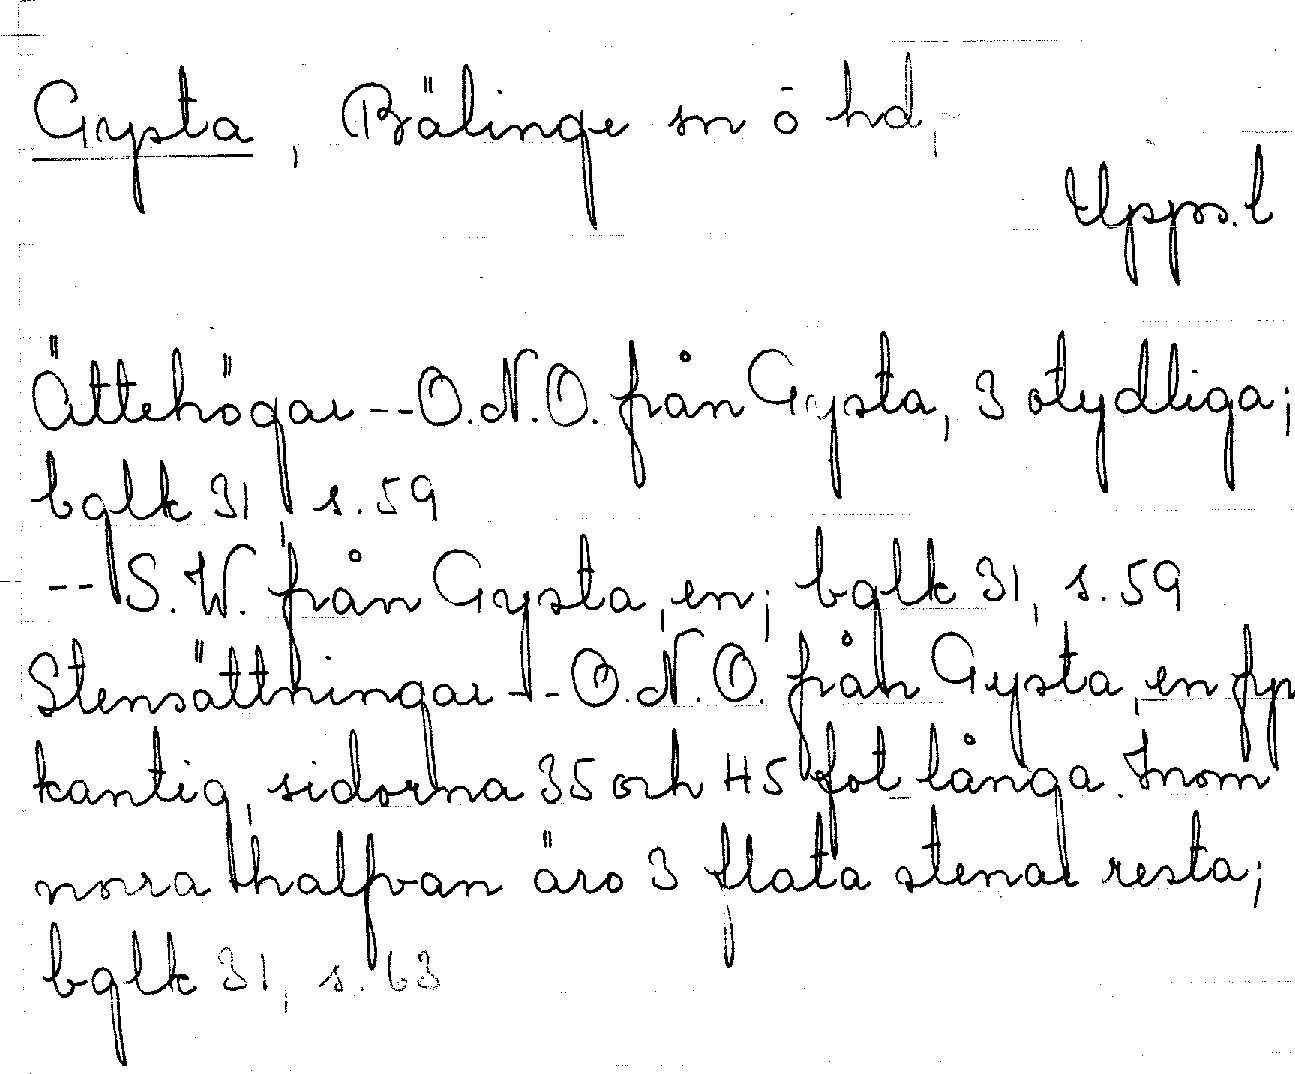 Gysta, Bälinge sn o hd,
Upps. l
Ättehögar -- O.N.O. från Gysta, 3 otydliga;
bglk 31, s. 59
-- S.W. från Gysta, en; bglk 31, s. 59
Stensättningar -- O.N.O. från Gysta, en fyr
kantig, sidorna 35 och 45 fot långa. Inom
norra halfvan äro 3 flata stenar resta;
bglk 31, s. 63